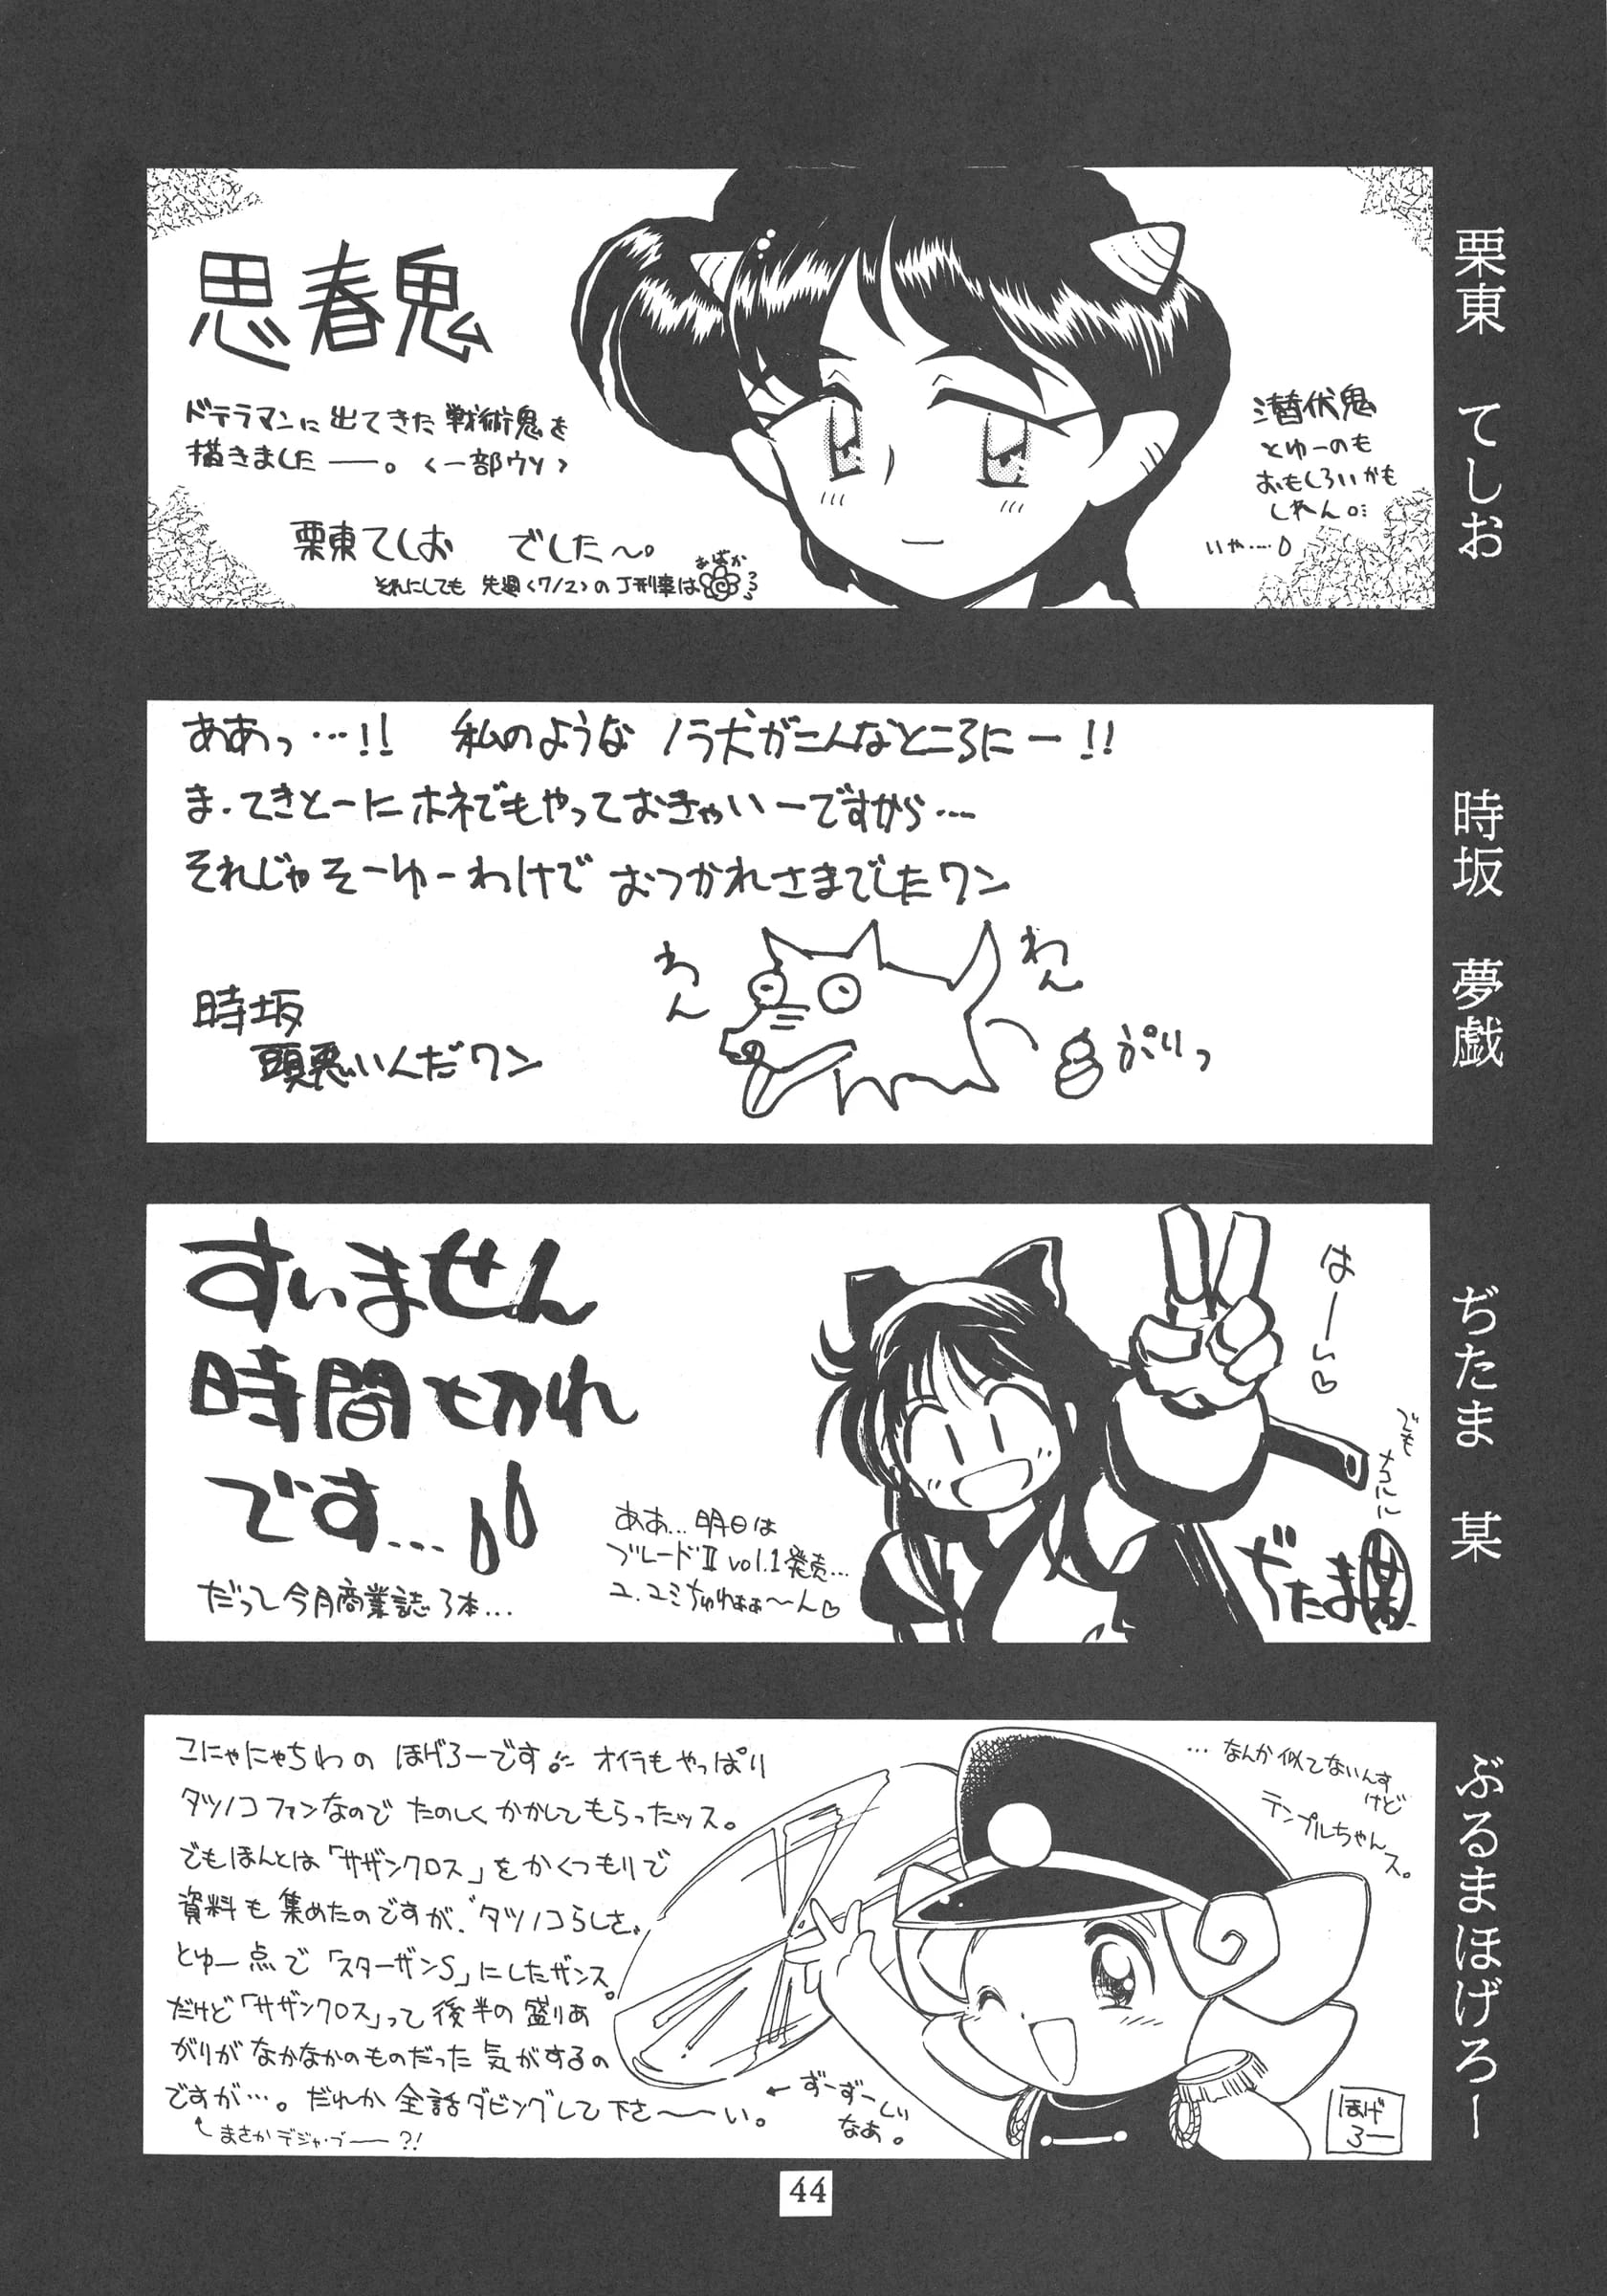 栗東 てしお
思春鬼
ドテラマンに出てきた戦術鬼を
描きましたーー。〈一部ウソ〉
栗東てしお でした〜。
それにしても 先週〈7/2〉のJ刑事は
あばか
潜伏鬼
とゆーのも
おもしろいかも
しれん。
いや…
時坂 夢戯
ああっ…!! 私のようなノラ犬がこんなところにー!!
ま・てきとーにホネでもやっておきゃいーですから…
それじゃそーゆーわけでおつかれさまでしたワン
わん
わん
時坂
頭悪いんだワン
ぷりっ
ぢたま 某
すいません
時間切れ
です…
だって今月商業誌3本…
ああ…明日は
ブレードII vol.1発売…
ユ、ユミちゅわぁぁ〜ん♡
はーい♡
でも
ナコルル
ぢたま某
ぶるまほげろー
こにゃにゃちわの ほげろーです オイラもやっぱり
タツノコファンなので たのしくかかしてもらったッス。
でもほんとは「サザンクロス」をかくつもりで
資料も集めたのですが、"タツノコらしさ"
とゆー点で「スターザンS」にしたザンス。
だけど「サザンクロス」って後半の盛りあ
がりがなかなかのものだった気がするの
ですが…。だれか全話ダビングして下さーーい。
まさかデジャ・ブーー?!
←ずーずーしい
なあ。
…なんか似てないんす
けど
テンプルちゃん
ス。
ほげ
ろー
44